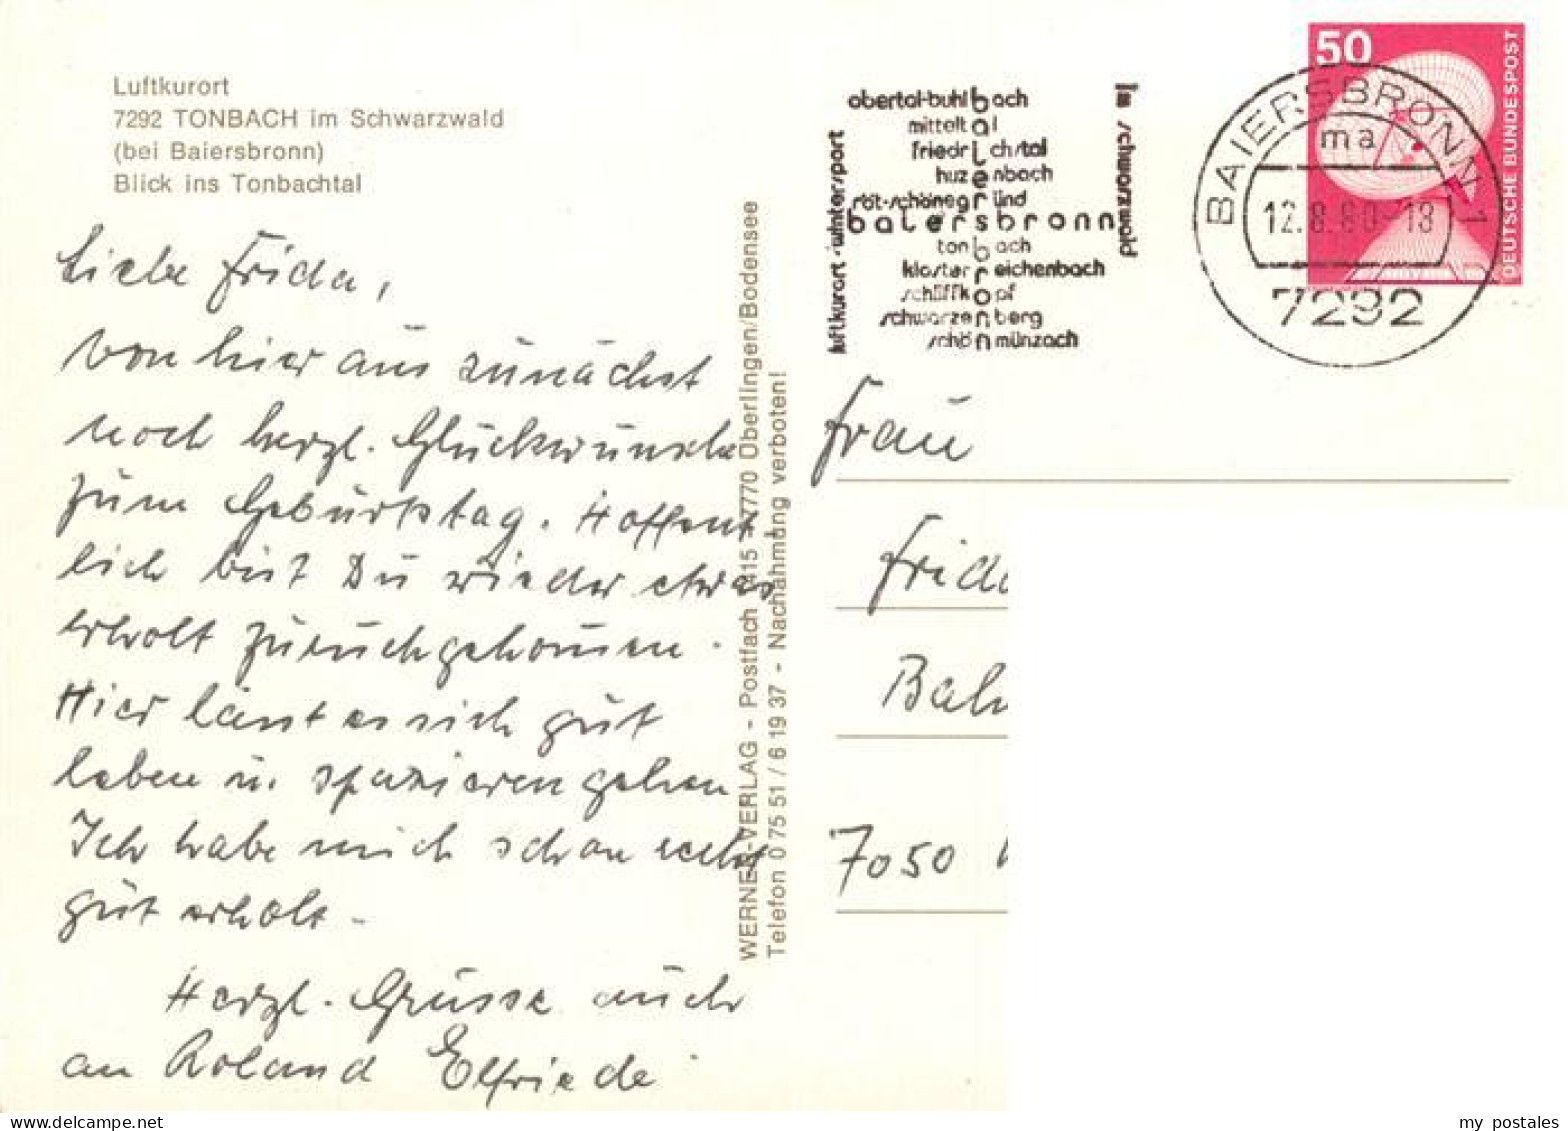 Luftkurort
7292 TONBACH im Schwarzwald
(bei Baiersbronn)
Blick ins Tonbachtal
Liebe Frida,
von hier aus zunächst
noch herzl. Glückwünsche
zum Geburtstag. Hoffent
lich bist Du wieder etwas
erholt zurückgekommen.
Hier lässt es sich gut
leben u. spazieren gehen
Ich habe mich schon recht
gut erholt.
Herzl. Grüsse auch
an Roland Elfriede
WERNER-VERLAG - Postfach 1415 - 7770 Überlingen/Bodensee
Telefon 0 75 51 / 6 19 37 - Nachahmung verboten!
luftkurort - wintersport
obertal-buhlbach
mitteltal
friedrichstal
huzenbach
röt-schönegründ
baiersbronn
tonbach
klosterreichenbach
schliffkopf
schwarzenberg
schönmünzach
im schwarzwald
50
DEUTSCHE BUNDESPOST
BAIERSBRONN 1
ma
12.8.80-18
7292
Frau
Frida
Bah
7050
my postales